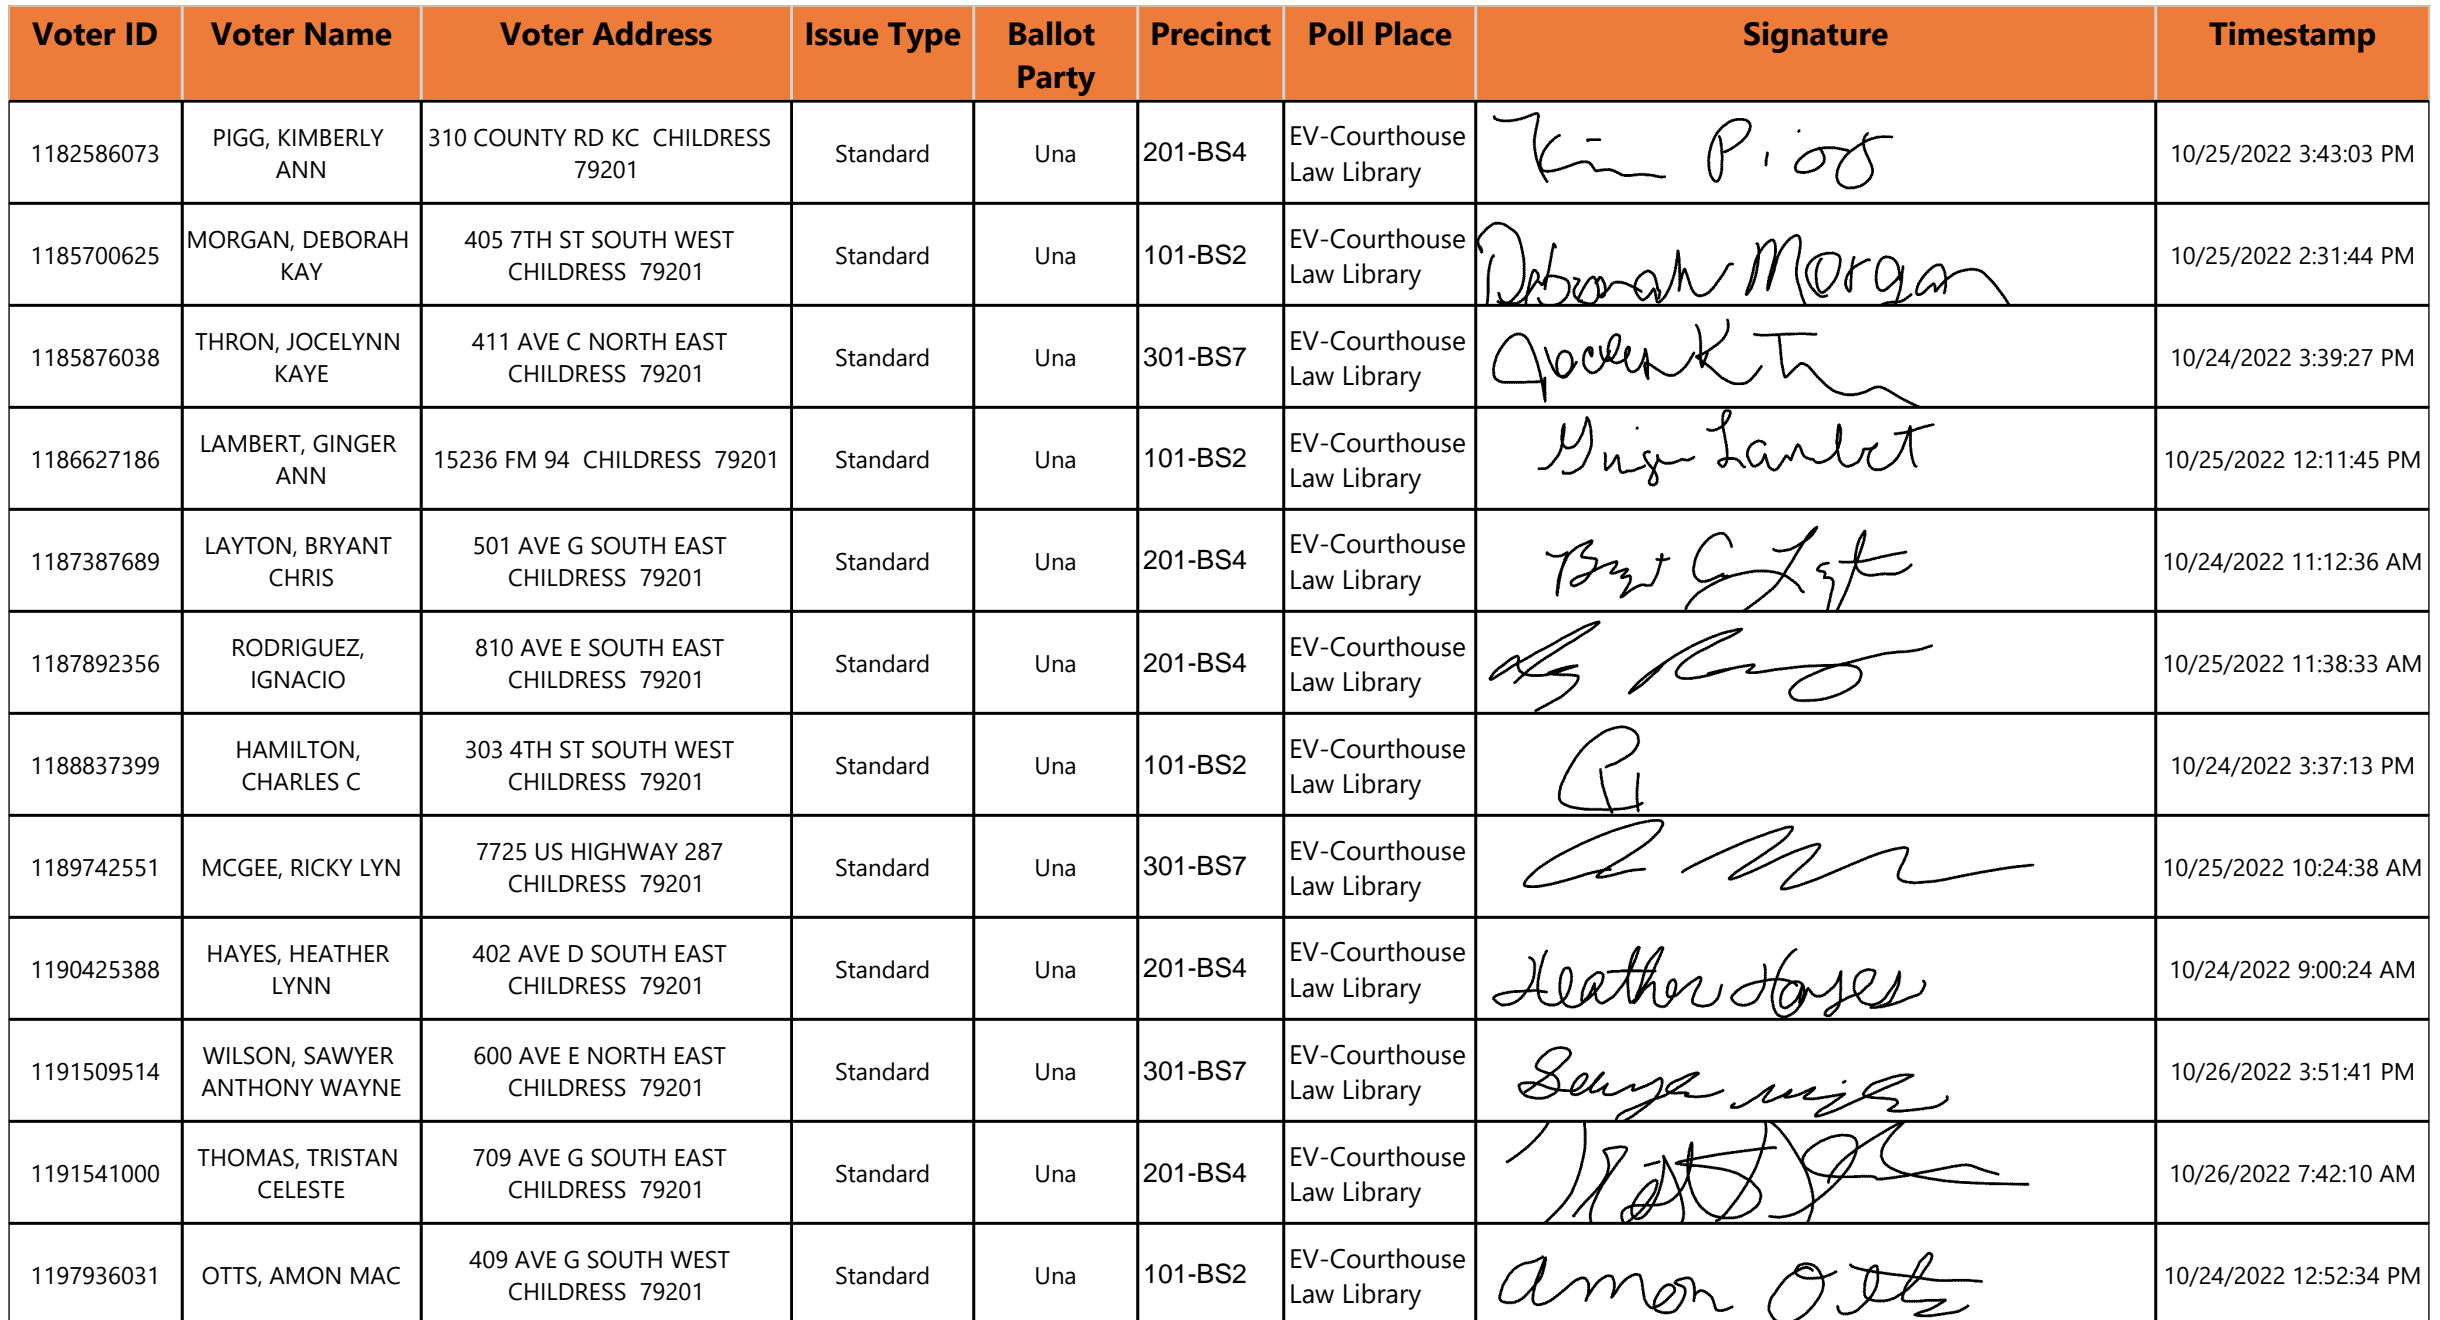 Voter ID Voter Name Voter Address Issue Type Ballot Party Precinct Poll Place Signature Timestamp
1182586073 PIGG, KIMBERLY ANN 310 COUNTY RD KC CHILDRESS 79201 Standard Una 201-BS4 EV-Courthouse Law Library Kim Pigg 10/25/2022 3:43:03 PM
1185700625 MORGAN, DEBORAH KAY 405 7TH ST SOUTH WEST CHILDRESS 79201 Standard Una 101-BS2 EV-Courthouse Law Library Deborah Morgan 10/25/2022 2:31:44 PM
1185876038 THRON, JOCELYNN KAYE 411 AVE C NORTH EAST CHILDRESS 79201 Standard Una 301-BS7 EV-Courthouse Law Library 10/24/2022 3:39:27 PM
1186627186 LAMBERT, GINGER ANN 15236 FM 94 CHILDRESS 79201 Standard Una 101-BS2 EV-Courthouse Law Library Ginger Lambert 10/25/2022 12:11:45 PM
1187387689 LAYTON, BRYANT CHRIS 501 AVE G SOUTH EAST CHILDRESS 79201 Standard Una 201-BS4 EV-Courthouse Law Library 10/24/2022 11:12:36 AM
1187892356 RODRIGUEZ, IGNACIO 810 AVE E SOUTH EAST CHILDRESS 79201 Standard Una 201-BS4 EV-Courthouse Law Library 10/25/2022 11:38:33 AM
1188837399 HAMILTON, CHARLES C 303 4TH ST SOUTH WEST CHILDRESS 79201 Standard Una 101-BS2 EV-Courthouse Law Library 10/24/2022 3:37:13 PM
1189742551 MCGEE, RICKY LYN 7725 US HIGHWAY 287 CHILDRESS 79201 Standard Una 301-BS7 EV-Courthouse Law Library 10/25/2022 10:24:38 AM
1190425388 HAYES, HEATHER LYNN 402 AVE D SOUTH EAST CHILDRESS 79201 Standard Una 201-BS4 EV-Courthouse Law Library Heather Hayes 10/24/2022 9:00:24 AM
1191509514 WILSON, SAWYER ANTHONY WAYNE 600 AVE E NORTH EAST CHILDRESS 79201 Standard Una 301-BS7 EV-Courthouse Law Library 10/26/2022 3:51:41 PM
1191541000 THOMAS, TRISTAN CELESTE 709 AVE G SOUTH EAST CHILDRESS 79201 Standard Una 201-BS4 EV-Courthouse Law Library 10/26/2022 7:42:10 AM
1197936031 OTTS, AMON MAC 409 AVE G SOUTH WEST CHILDRESS 79201 Standard Una 101-BS2 EV-Courthouse Law Library Amon Otts 10/24/2022 12:52:34 PM